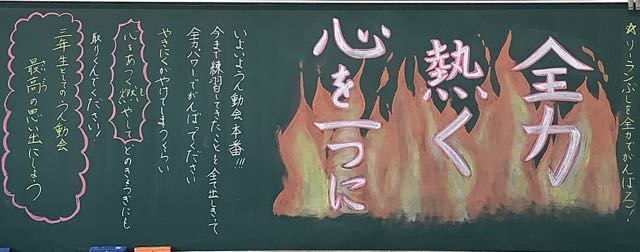 ☆ソーランぶしを全力でがんばろう!
全力
熱く
心を一つに
いよいようん動会本番!!!
今まで練習してきたことを全て出しきって
全力パワーでがんばってください
やきにくがやけてしまうくらい
心をあつく燃やしてどのきょうぎにも
取りくんでください!
三年生としてのうん動会
最高の思い出にしよう